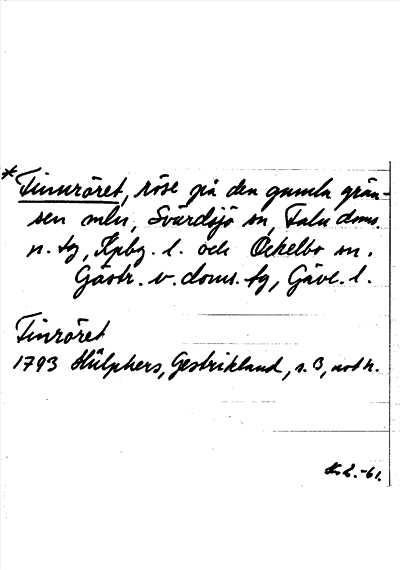 *Finnröret, röse på den gamla grän-
sen mln, Svärdsjö sn, Falu doms.
n. tg, Kpbg. l. och Ockelbo sn.
Gästr. v. doms. tg, Gävl. l.
Finröret
1793 Hülphers, Gestrikland, s. 3, not h.
-61.